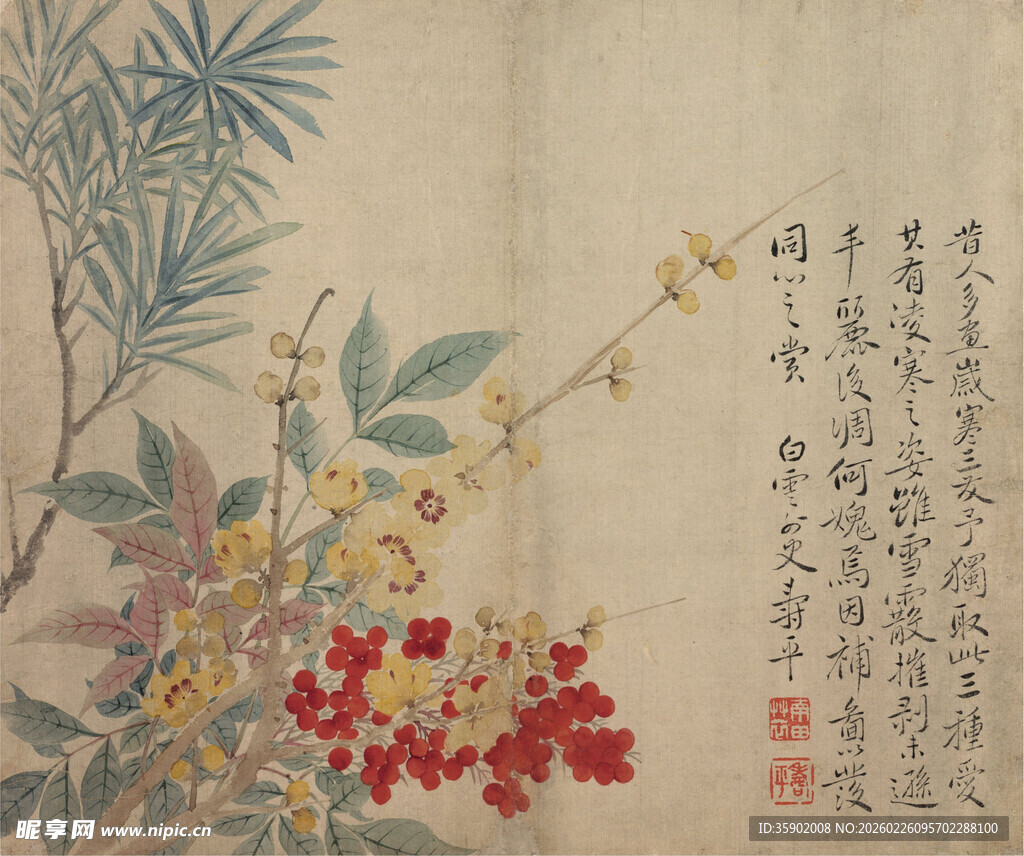 昔人多畫歲寒三友予獨取此三種愛
其有凌寒之姿雖雪霰摧剥未遜
丰麗後凋何媿焉因補圖以發
同心之賞 白雲外史壽平
南田草衣
壽平
昵享网 www.nipic.cn
ID:35902008 NO:20260226095702288100